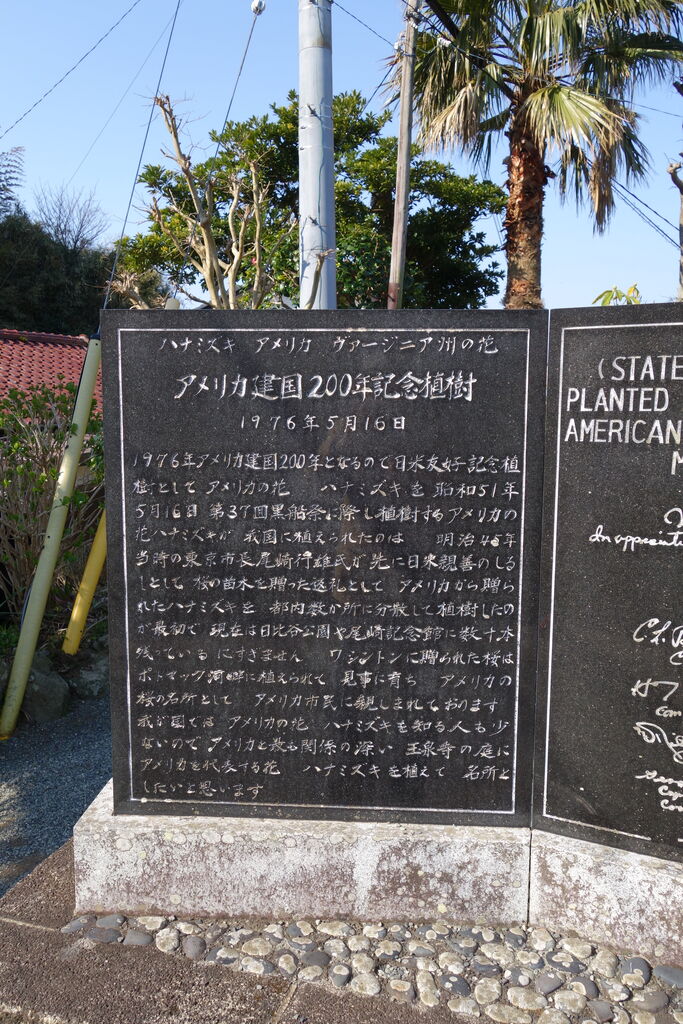 ハナミズキ アメリカ ヴァージニア州の花
アメリカ建国200年記念植樹
1976年5月16日
1976年アメリカ建国200年となるので日米友好記念植
樹として アメリカの花 ハナミズキを 昭和51年
5月16日 第37回黒船祭に際し植樹するアメリカの
花ハナミズキが 我国に植えられたのは 明治45年
当時の東京市長尾崎行雄氏が先に日米親善のしる
しとして 桜の苗木を贈った返礼として アメリカから贈ら
れたハナミズキを 都内数か所に分散して植樹したの
が最初で 現在は日比谷公園や尾崎記念館に数十本
残っている にすぎません ワシントンに贈られた桜は
ポトマック河畔に植えられて 見事に育ち アメリカの
桜の名所として アメリカ市民に親しまれております
我が国では アメリカの花 ハナミズキを知る人も少
ないので アメリカと最も関係の深い 玉泉寺の庭に
アメリカを代表する花 ハナミズキを植えて 名所と
したいと思います
(STATE
PLANTED
AMERICAN
M